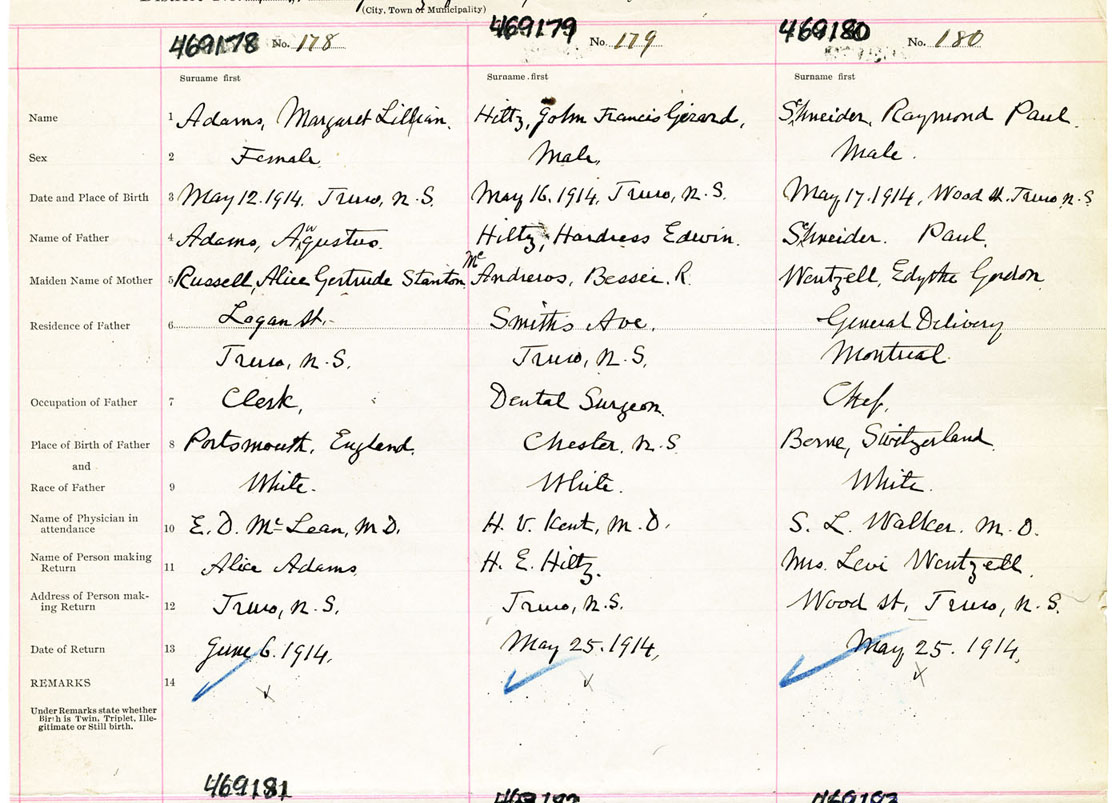 (City, Town or Municipality)
469178 No. 178
469179 No. 179
469180 No. 180
Surname first
Surname first
Surname first
Name 1 Adams, Margaret Lillian. Hiltz, John Francis Gerard, Schneider, Raymond Paul.
Sex 2 Female Male, Male.
Date and Place of Birth 3 May 12. 1914, Truro, N.S. May 16. 1914, Truro, N.S. May 17. 1914, Wood St. Truro, N.S
Name of Father 4 Adams, Agustus. Hiltz, Hardress Edwin. Schneider. Paul.
Maiden Name of Mother 5 Russell, Alice Gertrude Stanton. McAndrews, Bessie. R. Wentzell, Edythe Gordon
Residence of Father 6 Logan St. Smiths Ave. General Delivery
Truro, N.S. Truro, N.S. Montreal.
Occupation of Father 7 Clerk, Dental Surgeon. Chef.
Place of Birth of Father 8 Portsmouth, England. Chester, N.S Berne, Switzerland.
and
Race of Father 9 White. White. White.
Name of Physician in
attendance 10 E. D. McLean, M.D. H. V. Kent, M.D. S. L. Walker. M.D.
Name of Person making
Return 11 Alice Adams H. E. Hiltz. Mrs. Levi Wentzell.
Address of Person mak-
ing Return 12 Truro, N.S. Truro, N.S. Wood St, Truro, N.S.
Date of Return 13 June 6. 1914, May 25. 1914, May 25. 1914,
REMARKS 14
Under Remarks state whether
Birth is Twin, Triplet, Ille-
gitimate or Still birth.
469181